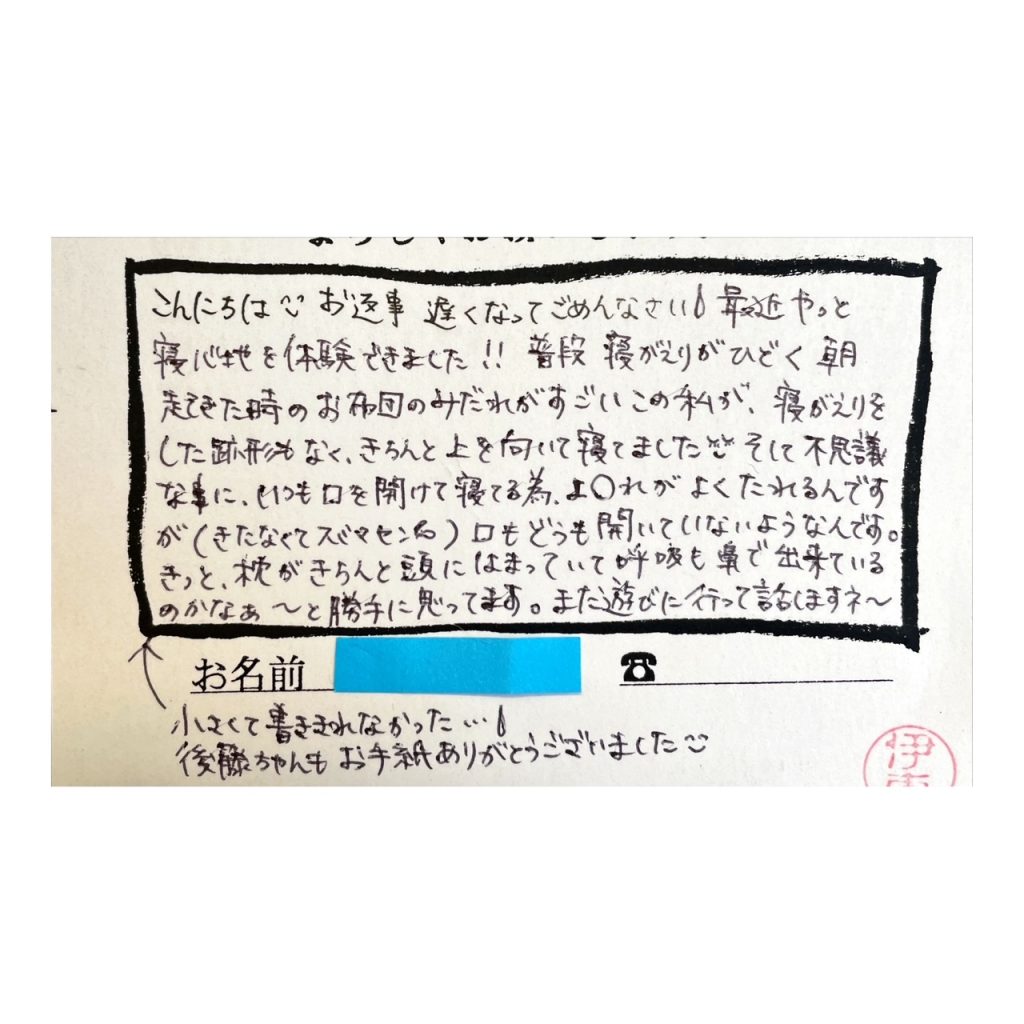 こんにちは お返事 遅くなってごめんなさい 最近 やっと
寝心地を体験できました!! 普段 寝がえりがひどく 朝
起きた時のお布団のみだれがすごいこの私が、寝がえりを
した跡形もなく、きちんと上を向いて寝てました そして不思議
な事に、いつも口を開けて寝てる為、よ〇れがよくたれるんです
が(きたなくてスミマセン)口もどうも開いていないようなんです。
きっと、枕がきちんと頭にはまっていて呼吸も鼻で出来ている
のかなぁ〜と勝手に思ってます。また遊びに行って話しますネ〜
お名前 ☎
小さくて書ききれなかった…
後藤ちゃんもお手紙ありがとうございました
伊